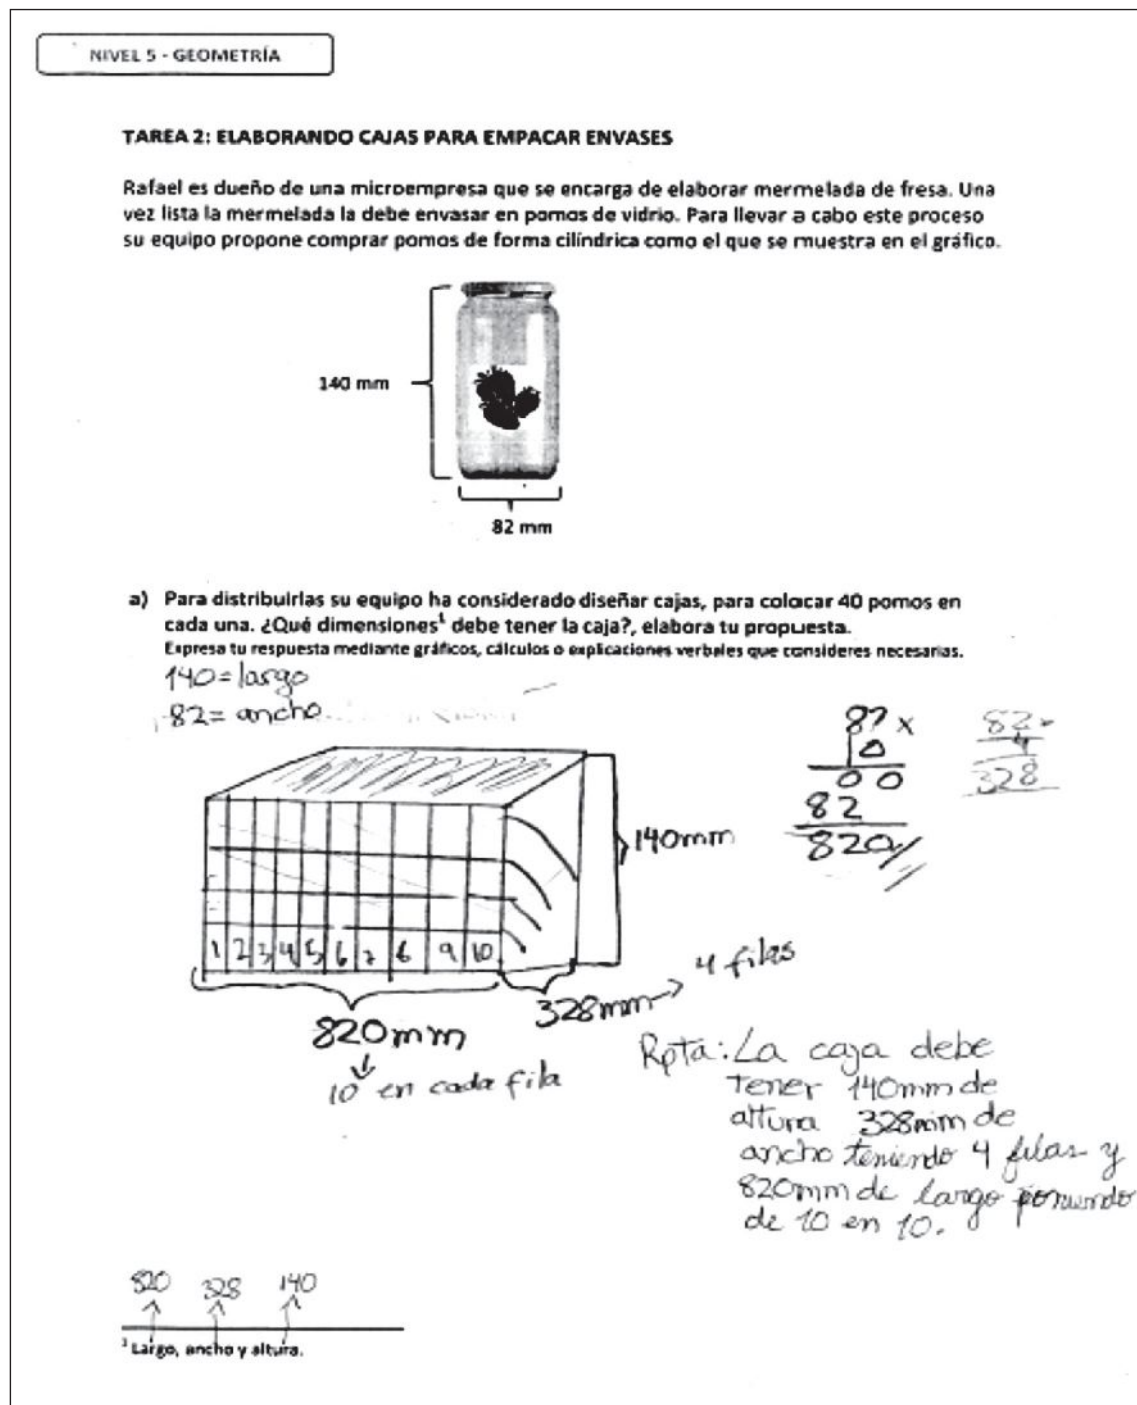 NIVEL 5 - GEOMETRÍA
TAREA 2: ELABORANDO CAJAS PARA EMPACAR ENVASES
Rafael es dueño de una microempresa que se encarga de elaborar mermelada de fresa. Una
vez lista la mermelada la debe envasar en pomos de vidrio. Para llevar a cabo este proceso
su equipo propone comprar pomos de forma cilíndrica como el que se muestra en el gráfico.
140 mm
82 mm
a) Para distribuirlas su equipo ha considerado diseñar cajas, para colocar 40 pomos en
cada una. ¿Qué dimensiones¹ debe tener la caja?, elabora tu propuesta.
Expresa tu respuesta mediante gráficos, cálculos o explicaciones verbales que consideres necesarias.
140 = largo
82 = ancho
82 x
10
00
82
820//
82x
4
328
140mm
1 2 3 4 5 6 7 8 9 10
820mm
10 en cada fila
328mm → 4 filas
Rpta: La caja debe
tener 140mm de
altura 328mm de
ancho teniendo 4 filas y
820mm de largo poniendo
de 10 en 10.
820 328 140
¹ Largo, ancho y altura.